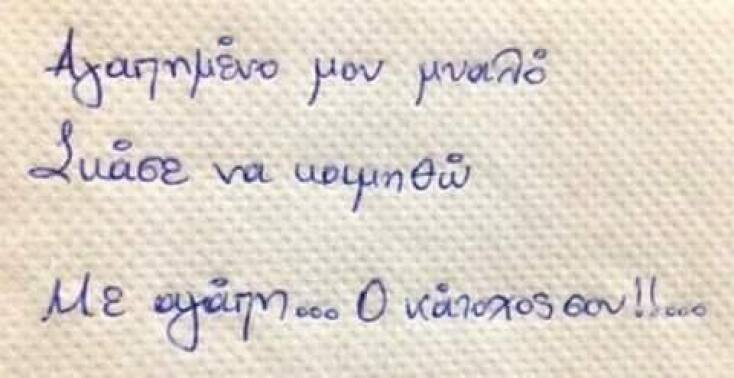 Αγαπημένο μου μυαλό
Σκάσε να κοιμηθώ
Με αγάπη... Ο κάτοχος σου!!...